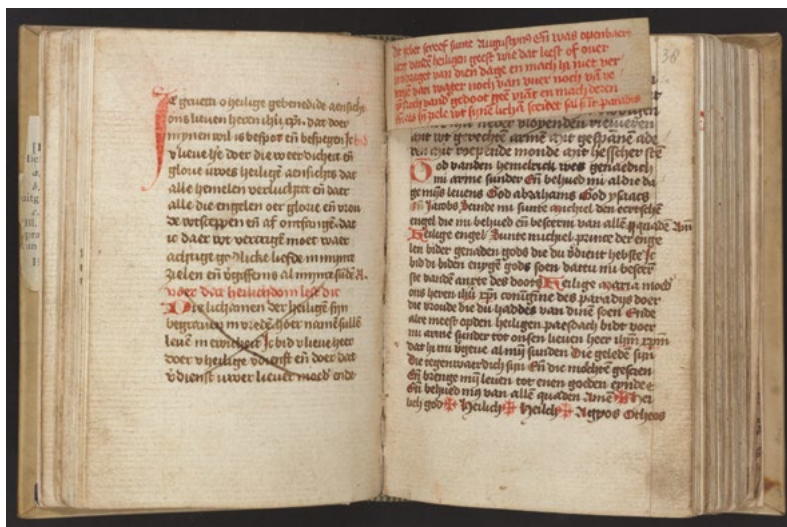 gruetu o heilige gebenedide aensicht
ons lieuen heren ihu xpi. dat doer
mynen wil is bespot en bespegen Ic bid
v lieue he doer die weerdicheit en
glorie uwes heilige aensichts dat
alle hemelen verluchtet en daer
alle die engelen oer glorie en vrou
de wtsceppen en af ontfangē. dat
ic daer wt vercrigē moet waer
achtige godlicke liefde in mynre
zielen en vgiffenis al mynre sūdē A.
voer dat heilichdom lest die
Die lichamen der heiligē sijn
begrauen in vreden hoer namē sullē
leuē in ewicheit Ic bid v lieue heer
doer v heilige vdienst en doer dat
v dienst uwer lieuer moed ende
38
Dit gebet screef sunte Augustyn9 En was openbaert
heiligen geest wie dat leest of ouer
van dien dage en mach hi niet ver
van water noch van vuer noch vā ve
gedoot
wt sinē lichā sceidet sal sijt paradis
wt gerechte armē wt gespānē ade
wt roepende monde wt heesscher stē
God vanden hemelrick wes genaedich
mi arme sunder En behued mi al die da
ge mijs leuens God abrahams God ysaacs
En Jacobs Seinde mi sunte michiel den eertschē
engel die mi behued en bescerm van allē quadē Am
Heilige engel Sunte michiel prince der enge
len bider genaden gods die du vdient hebste Ic
bid di biden enygē gods soen dattu mi bescer
ste vandē anxte des doots Heilige maria moed
ons heren ihu xpi coningīne des paradijs doer
die vroude die du haddes van dinē soen Ende
alre meest opden heiligen paesdach bidt voer
mi arme sunder tot onsen lieuen heer ihm xpm
dat hi mi vgeue al mij sunden Die geledē sijn
die tegenwaerdich sijn En die mochtē gescien
En brenge mij leuen tot enen goeden eynde
En behued mij van allē quaden Amē ✠ Hei
lich god ✠ Heilich ✠ Heilich ✠ Agyos Otheos